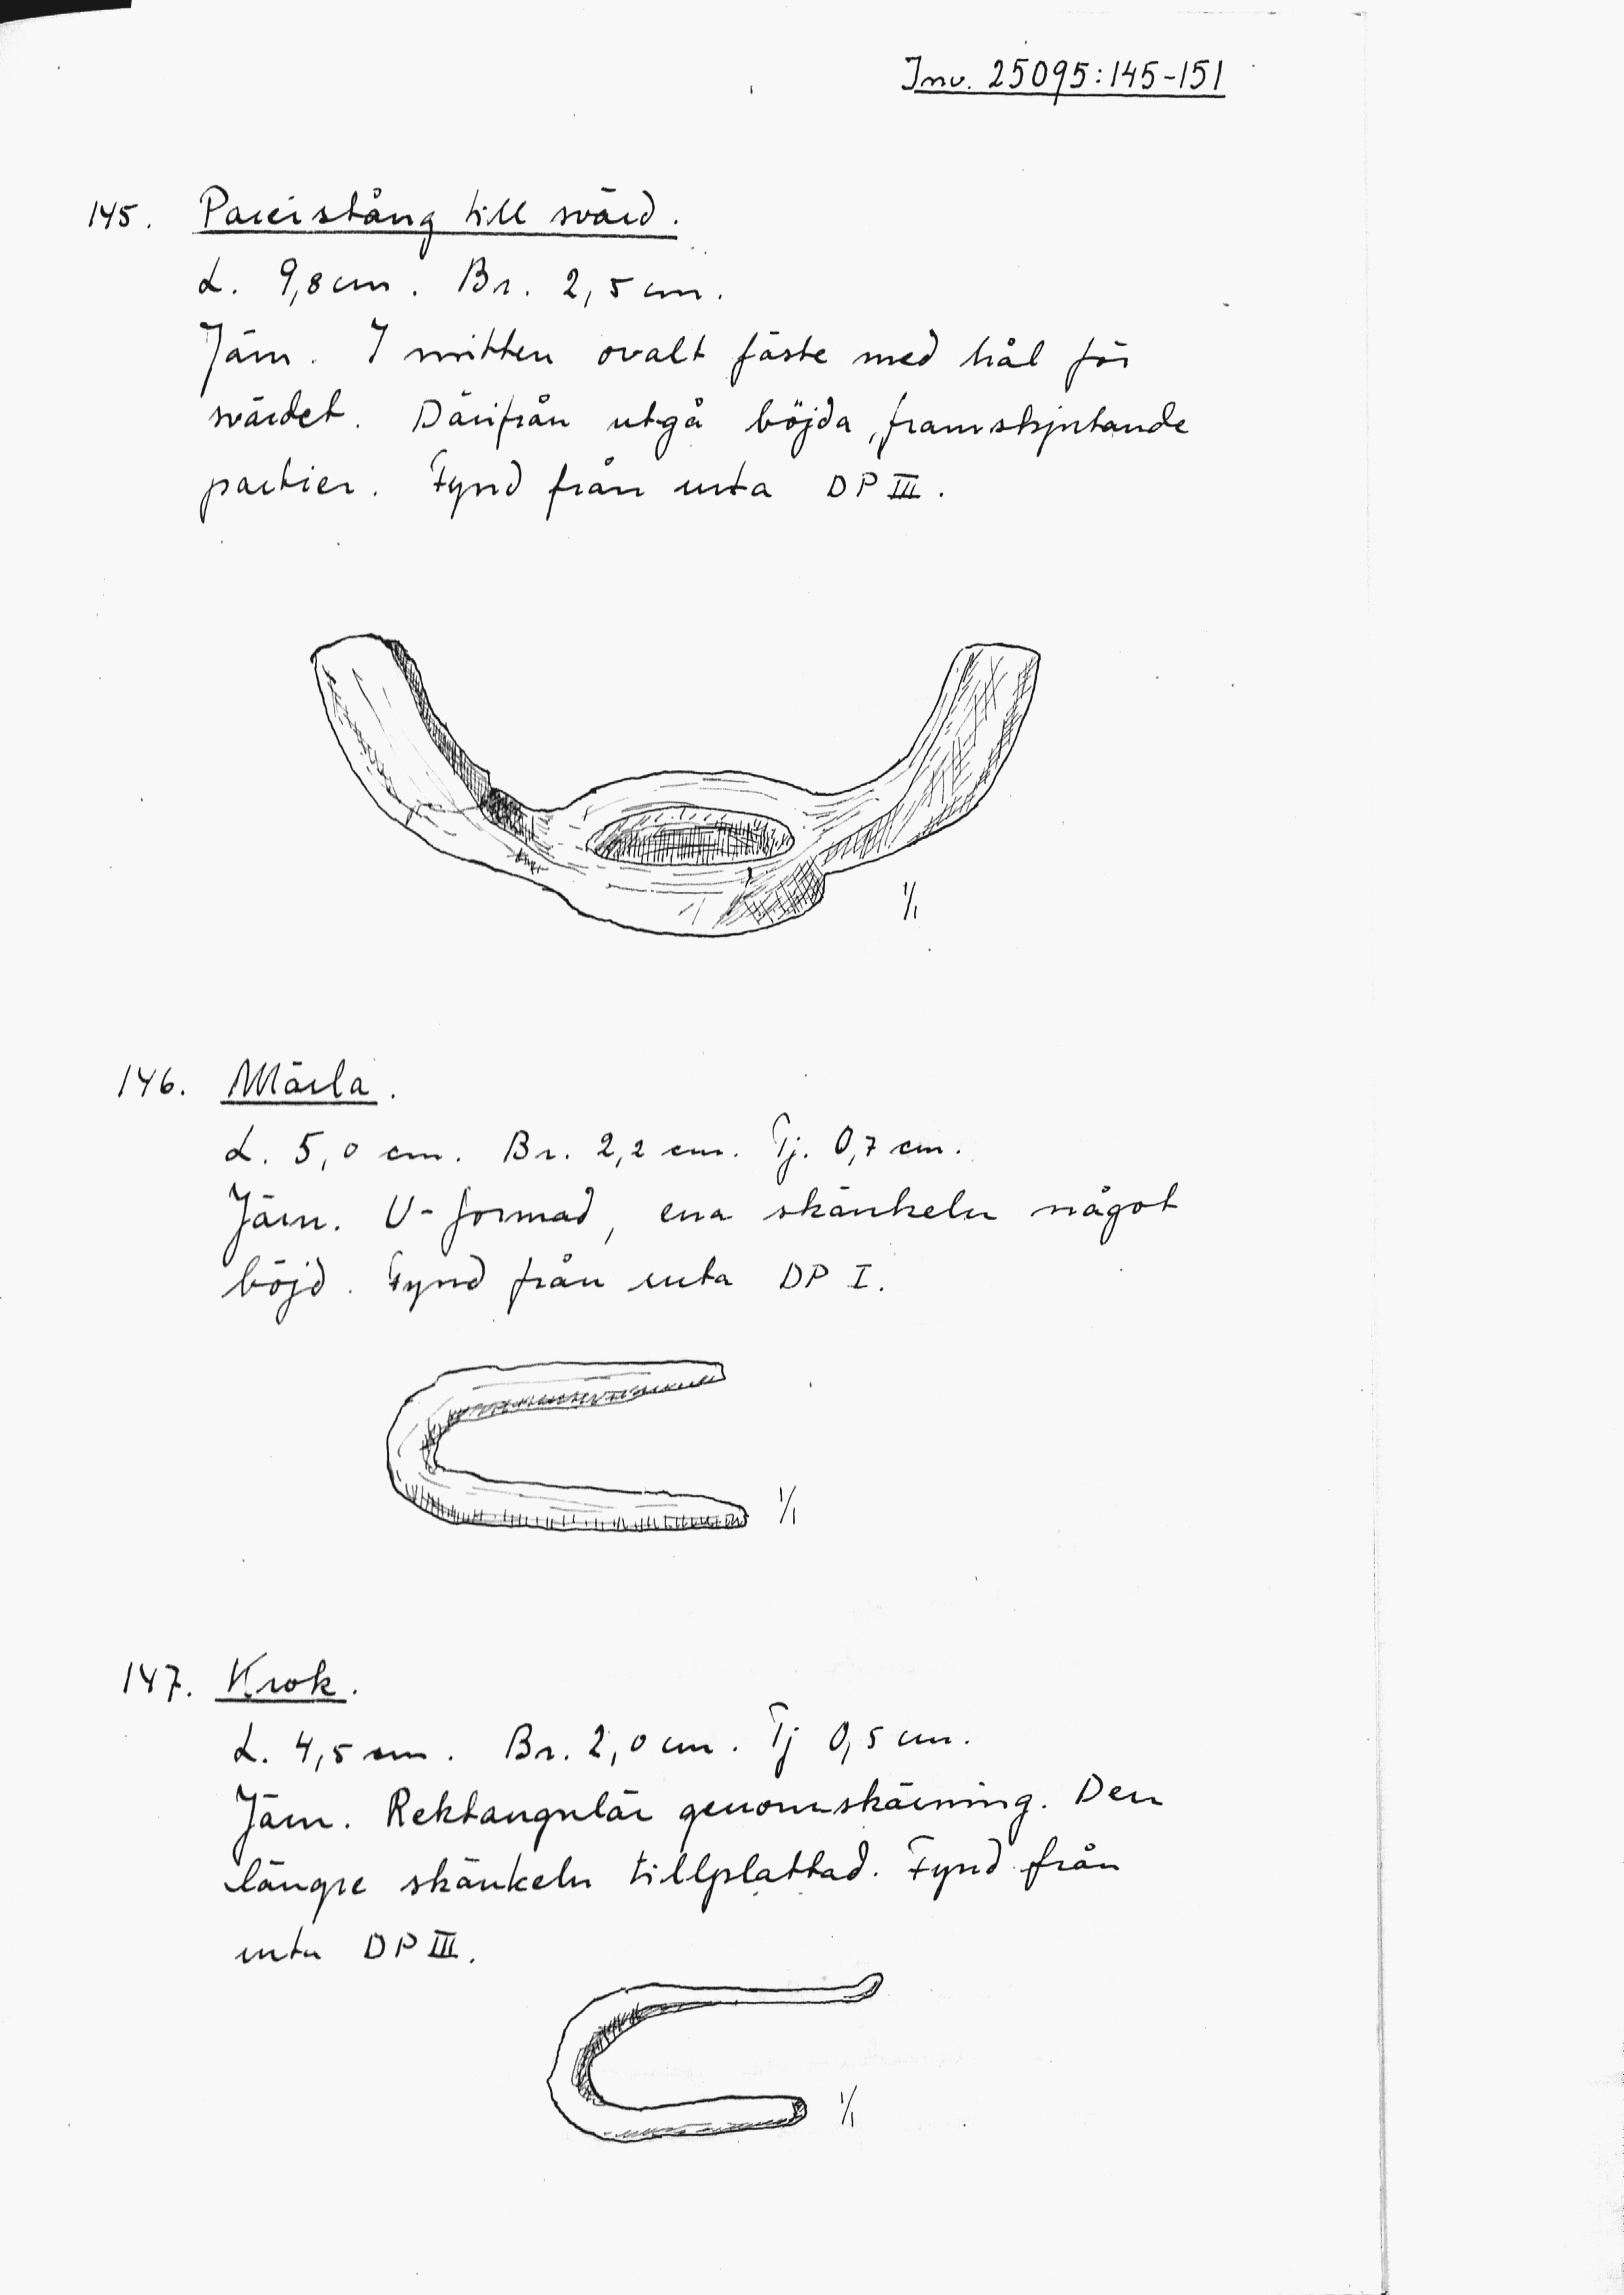 Inv. 25095:145-151
145. Parerstång till svärd.
L. 9,8 cm. Br. 2,5 cm.
Järn. I mitten ovalt fäste med hål för
svärdet. Därifrån utgå böjda, framskjutande
partier. Fynd från ruta DP III.
1/1
146. Märla.
L. 5,0 cm. Br. 2,2 cm. Tj. 0,7 cm.
Järn. U-formad, ena skänkeln något
böjd. Fynd från ruta DP I.
1/1
147. Krok.
L. 4,5 cm. Br. 2,0 cm. Tj 0,5 cm.
Järn. Rektangulär genomskärning. Den
längre skänkeln tillplattad. Fynd från
ruta DP III.
1/1